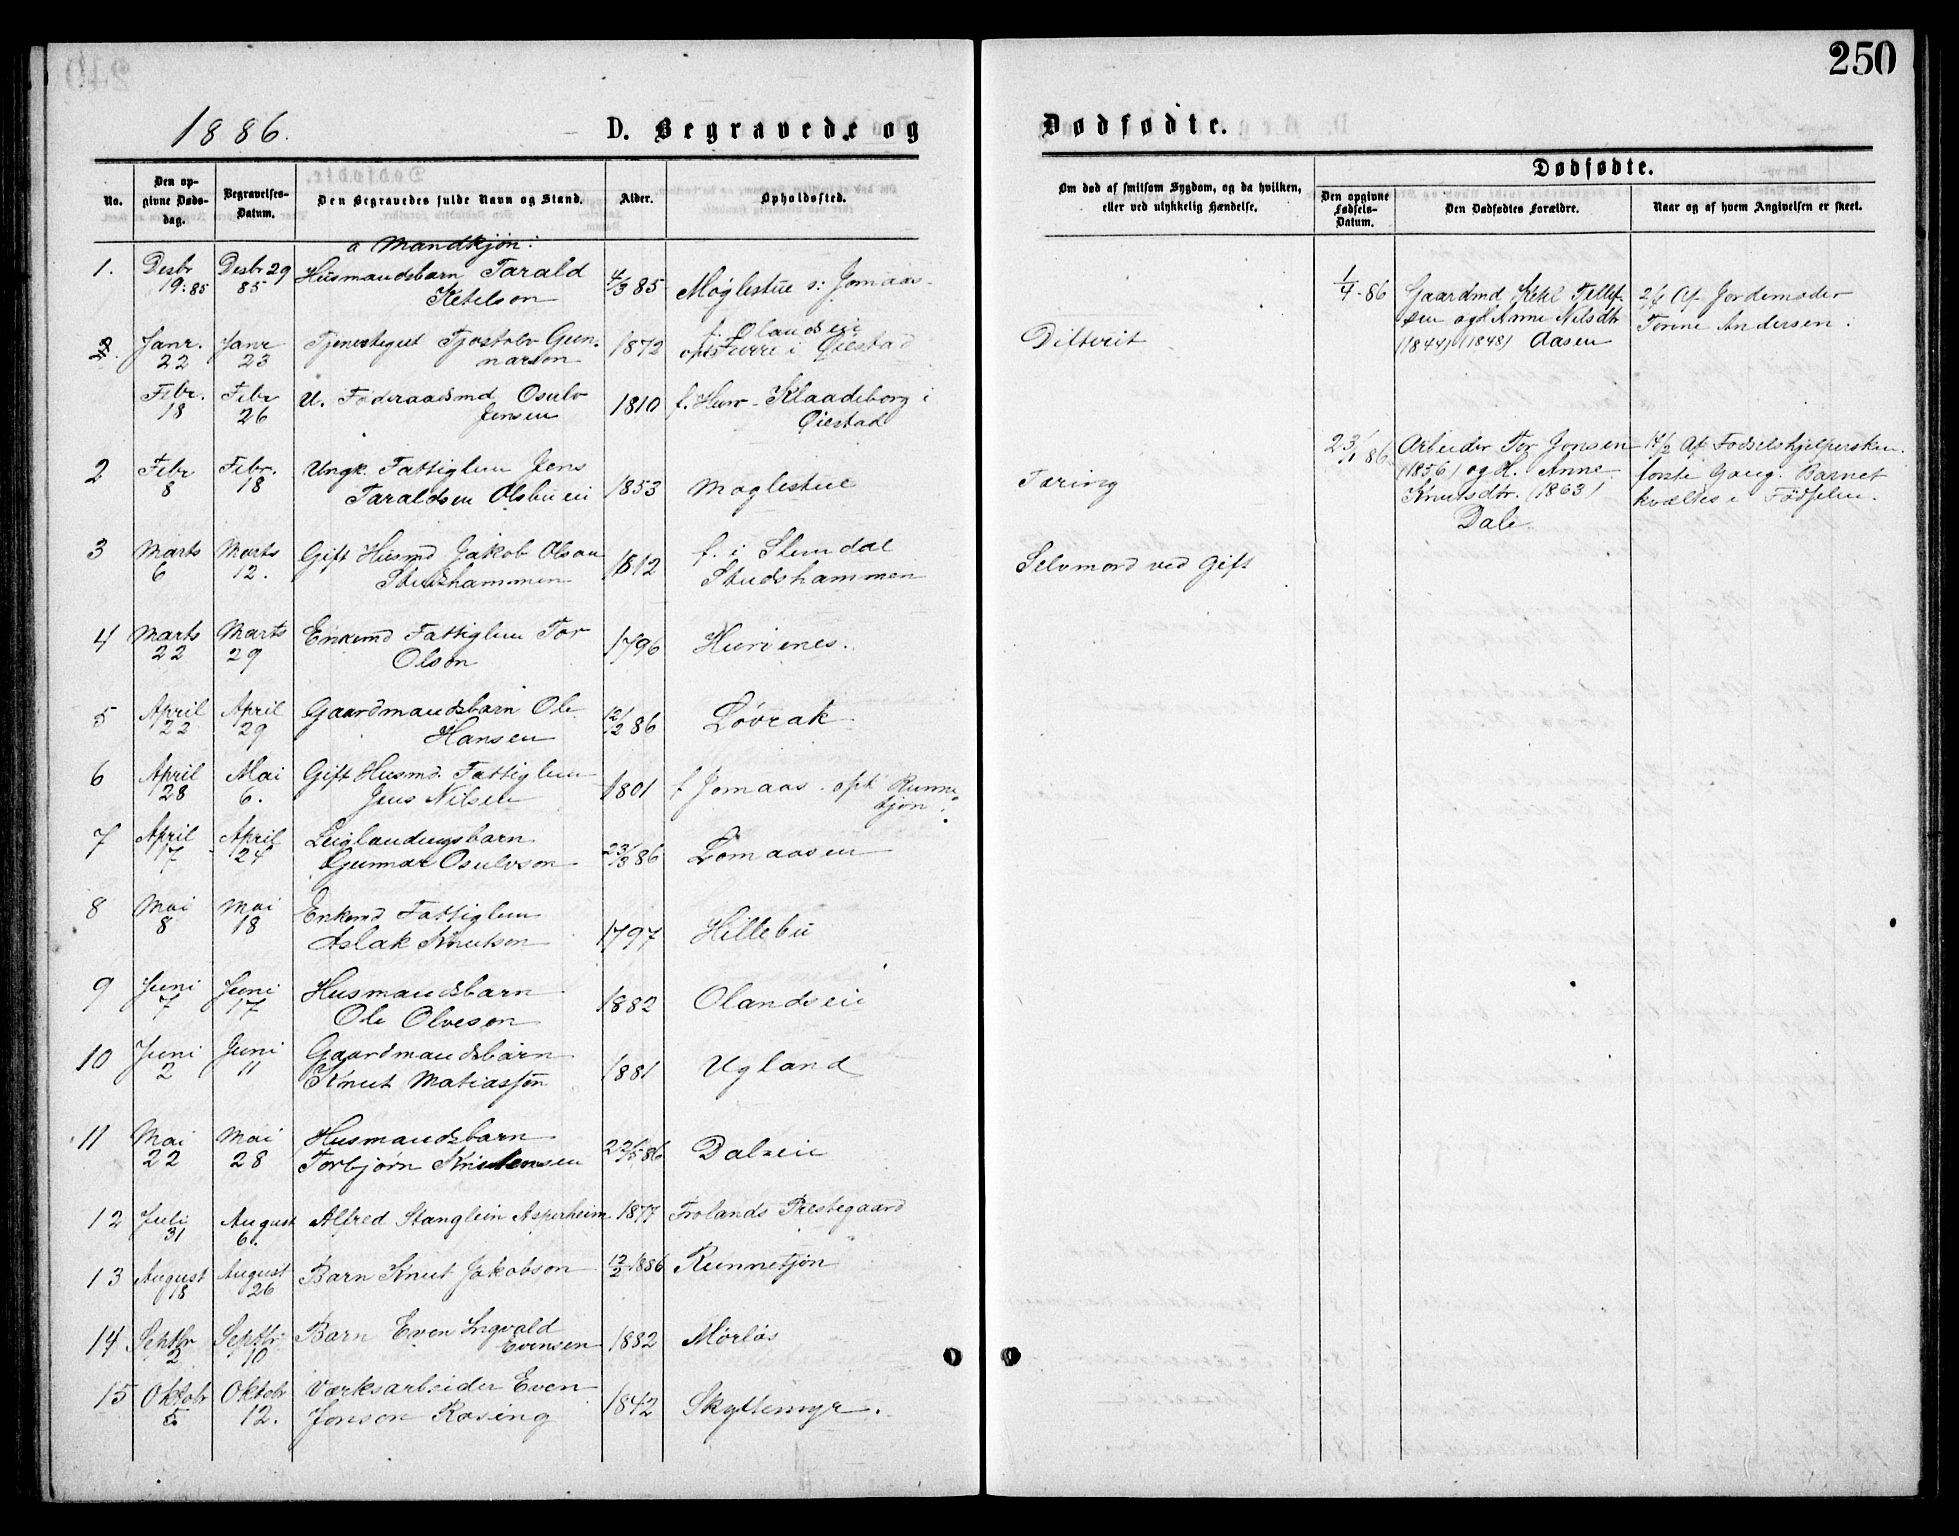 250
1886.
D. Begravede og
Dødfødte.
No.
Den op-
givne Døds-
dag.
Begravelses-
Datum.
Den Begravedes fulde Navn og Stand.
Alder.
Opholdssted.
Om død af smitsom Sygdom, og da hvilken,
eller ved ulykkelig Hændelse.
Dødfødte.
Den opgivne
Fødsels-
Datum.
Den Dødfødtes Forældre.
Naar og af hvem Angivelsen er skeet.
a Mandkjøn:
1. Desbr Desbr 29 Husmandsbarn Tarald 4/3 85 Møglestue s: Jomaas
19: 85 85 Ketelson
1/4-86 Gaardmd Ketil Tellef- 2/6 Af Jordemoder
sen og H. Anne Nilsdtr Torine Andersen.
(1844) (1848) Aasen
f. Olandseie
Janr. Janr Tjenestegut Tjostolv Gun- 1872 i Øiestad Difterit
22 23 narson
Febr. Febr U. Føderaadsmd Osulv 1810 f. Klaadeborg i
18 26 Jensen Øiestad
2 Febr Febr. Ungk. Fattiglem Jens 1853 Møglestue Tæring
8 18 Taraldsen Olsbueii
23/1 86 Arbeider Tor Jonsen 14/2 Af Fødselshjelpersken
(1856) og H. Anne første Gang. Barnet
Knutsdtr. (1863) kvæltes i Fødselen.
Dale.
3 Marts Marts Gift Husmd Jakob Olson 1812 f. i Stemdal Selvmord ved Gift
6 12. Studshammen Studshammen
4 Marts Marts Enkemd Fattiglem Tor 1796 Hurvenes.
22 29 Olson
5 April April Gaardmandsbarn Ole 12/2 86 Løvrak
22 29 Hansen
6 April Mai Gift Husmd. Fattiglem 1801 f Jomaas. oph Runne
28 6. Jens Nilsen tjøn.
7 April April Leilændingsbarn 23/3 86 Lomaasen
17 24 Gunnar Osulvson
8 Mai Mai Enkemd Fattiglem 1797 Hillebu
8 18 Aslak Knutson
9 Juni Juni Husmandsbarn 1882 Olandseie
7 17 Ole Olveson
10 Juni Juni Gaardmandsbarn 1881 Ugland
2 11 Knut Matiassøn
11 Mai Mai Husmandsbarn 22/5 86 Dalseie
22 28 Torbjørn Knutensen
12 Juli August Alfred Stanglein Asperheim 1877 Frolands Prestegaard
31 6.
13 August August Barn Knut Jakobson 12/2 1886 Runnetjøn
18 26
14 Septbr Septbr: Barn Even Ingvald 1882 Mørløs
2 10 Evensen
15 Oktobr Oktobr Værksarbeider Even 1842 Skyttemyr.
5 12. Jonson Rosing